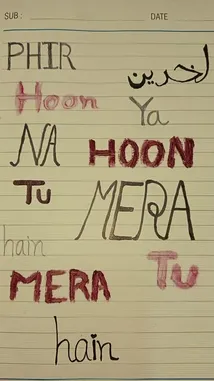 SUB.: DATE
PHIR
لخرين
Hoon
Ya
NA
HOON
Tu
MERA
hain
Tu
MERA
hain